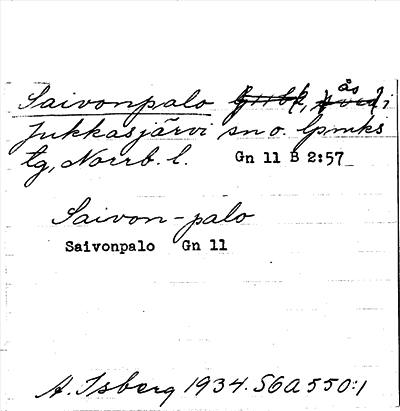 Saivonpalo ås i
Jukkasjärvi sn o. lpmks
tg, Norrb. l. Gn 11 B 2:57
Saivon-palo
Saivonpalo Gn 11
A. Isberg 1934. S6A550:1